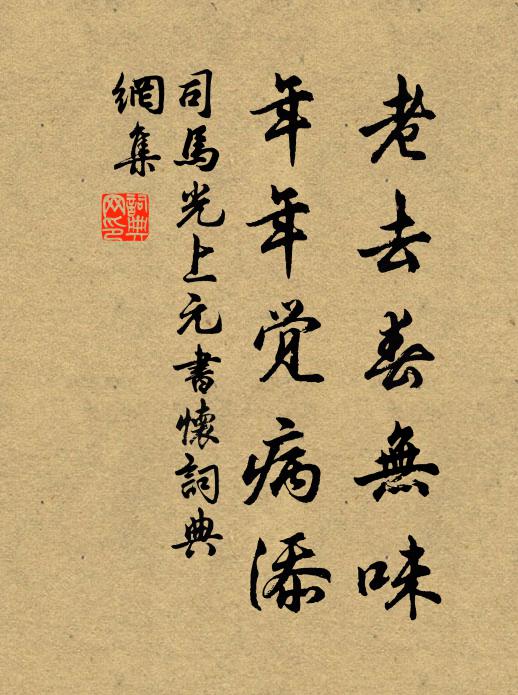 老去春無味
年年覺病添
司馬光上元書懷詞典
網集
詞典
网印